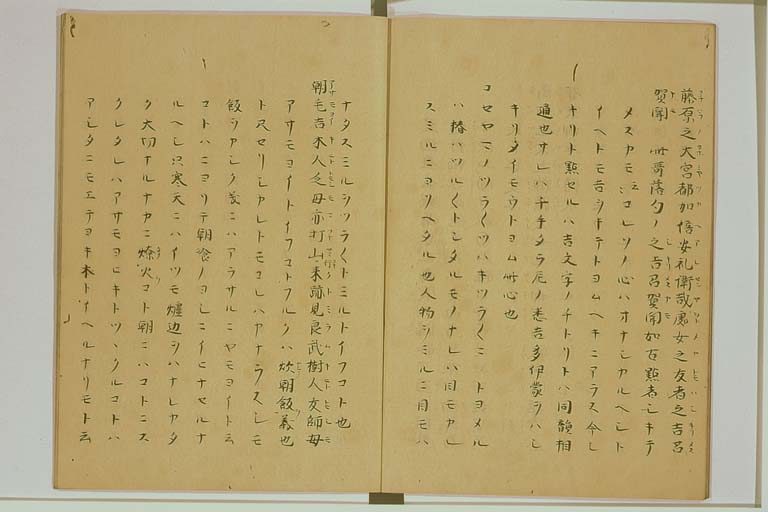 藤原之大宮都加倍安礼衝哉處女之友者之吉呂
賀聞 此哥落句ノ之吉呂賀聞如古點者シキテ
メスカモ云云コレソノ心ハオナシカルヘシト
イヘトモ吉シキテトヨムヘキニアラス今シ
キリト點セルハ吉文字ノチトリトハ同韻相
通也サレハ千手タラ尼ノ悉吉多伊蒙ヲハシ
キリタイモウトヨム此心也
コセヤマノツラ〱ツハキツラ〱ニ トヨメル
ハ椿ハツル〱トシタルモノナレハ目モカレ
スミルニヨソヘタル也人物ヲミルニ目モハ
ナタスミルヲツラ〱トミルトイフコト也
朝毛吉木人乏母亦打山 来跡見良武樹人友師母
アサモヨイトイフコトフルクハ炊朝飯義也
ト尺セリシカレトモコレハアナラスシモ
飯ヲカシク義ニハアラサルニヤモヨイト云
コトハニヨリテ朝飡ノヨシニイヒナセルナ
ルヘシ只寒天ニハイツモ爐辺ヲハナレカタ
ク大切ナルナカニ燎火コト朝ニハコトニス
クレタレハアサモヨヒキトツヽクルコトハ
アシタニモエテヨキ木トイヘルナリモト云